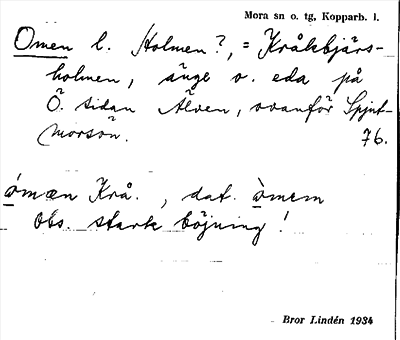 Mora sn o. tg, Kopparb. l.
Omen l. Holmen?, = Kråkbjärs-
holmen, änge o. eda på
Ö. sidan Älven, ovanför Spjut-
morsön. 76.
ómæn Krå. , dat. òmem
Obs. stark böjning!
Bror Lindén 1934